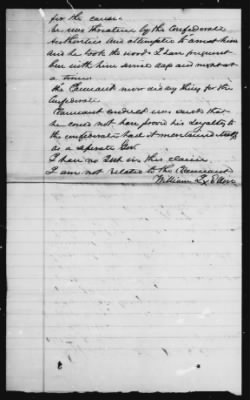 for the cause.
he was threatened by the Confederate
Authorities and attempted to arrest him
and he took the woods. I have frequent
been with him since and
a time.
the Claimant never did any thing for the
Confederate.
Claimant conduct was such that
he could not have proved his Loyalty to
the confederate had it maintained itself
as a seperate Gov.
I have no Intr in this claim
I am not related to the Claimant
William